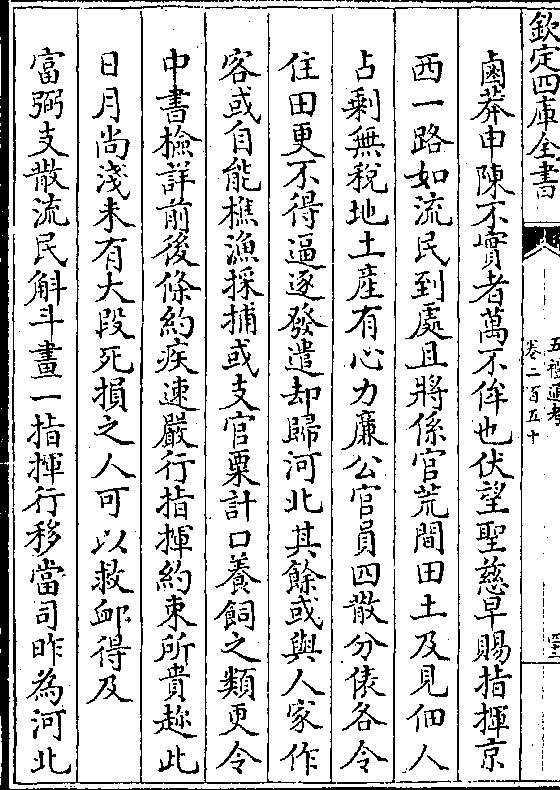 欽定四庫全書
五禮通考
卷二百五十
鹵莽申陳不實者萬不侔也伏望聖慈早賜指揮京
西一路如流民到處且將係官荒閒田土及見佃人
占剩無稅地土産有心力廉公官員四散分俵各令
住田更不得逼逐發遣却歸河北其餘或與人家作
客或自能樵漁採捕或支官粟計口養飼之類更令
中書檢詳前後條約疾速嚴行指揮約束所貴趂此
日月尚淺未有大段死損之人可以救䘏得及
富弼支散流民斛斗畫一指揮行移當司昨為河北